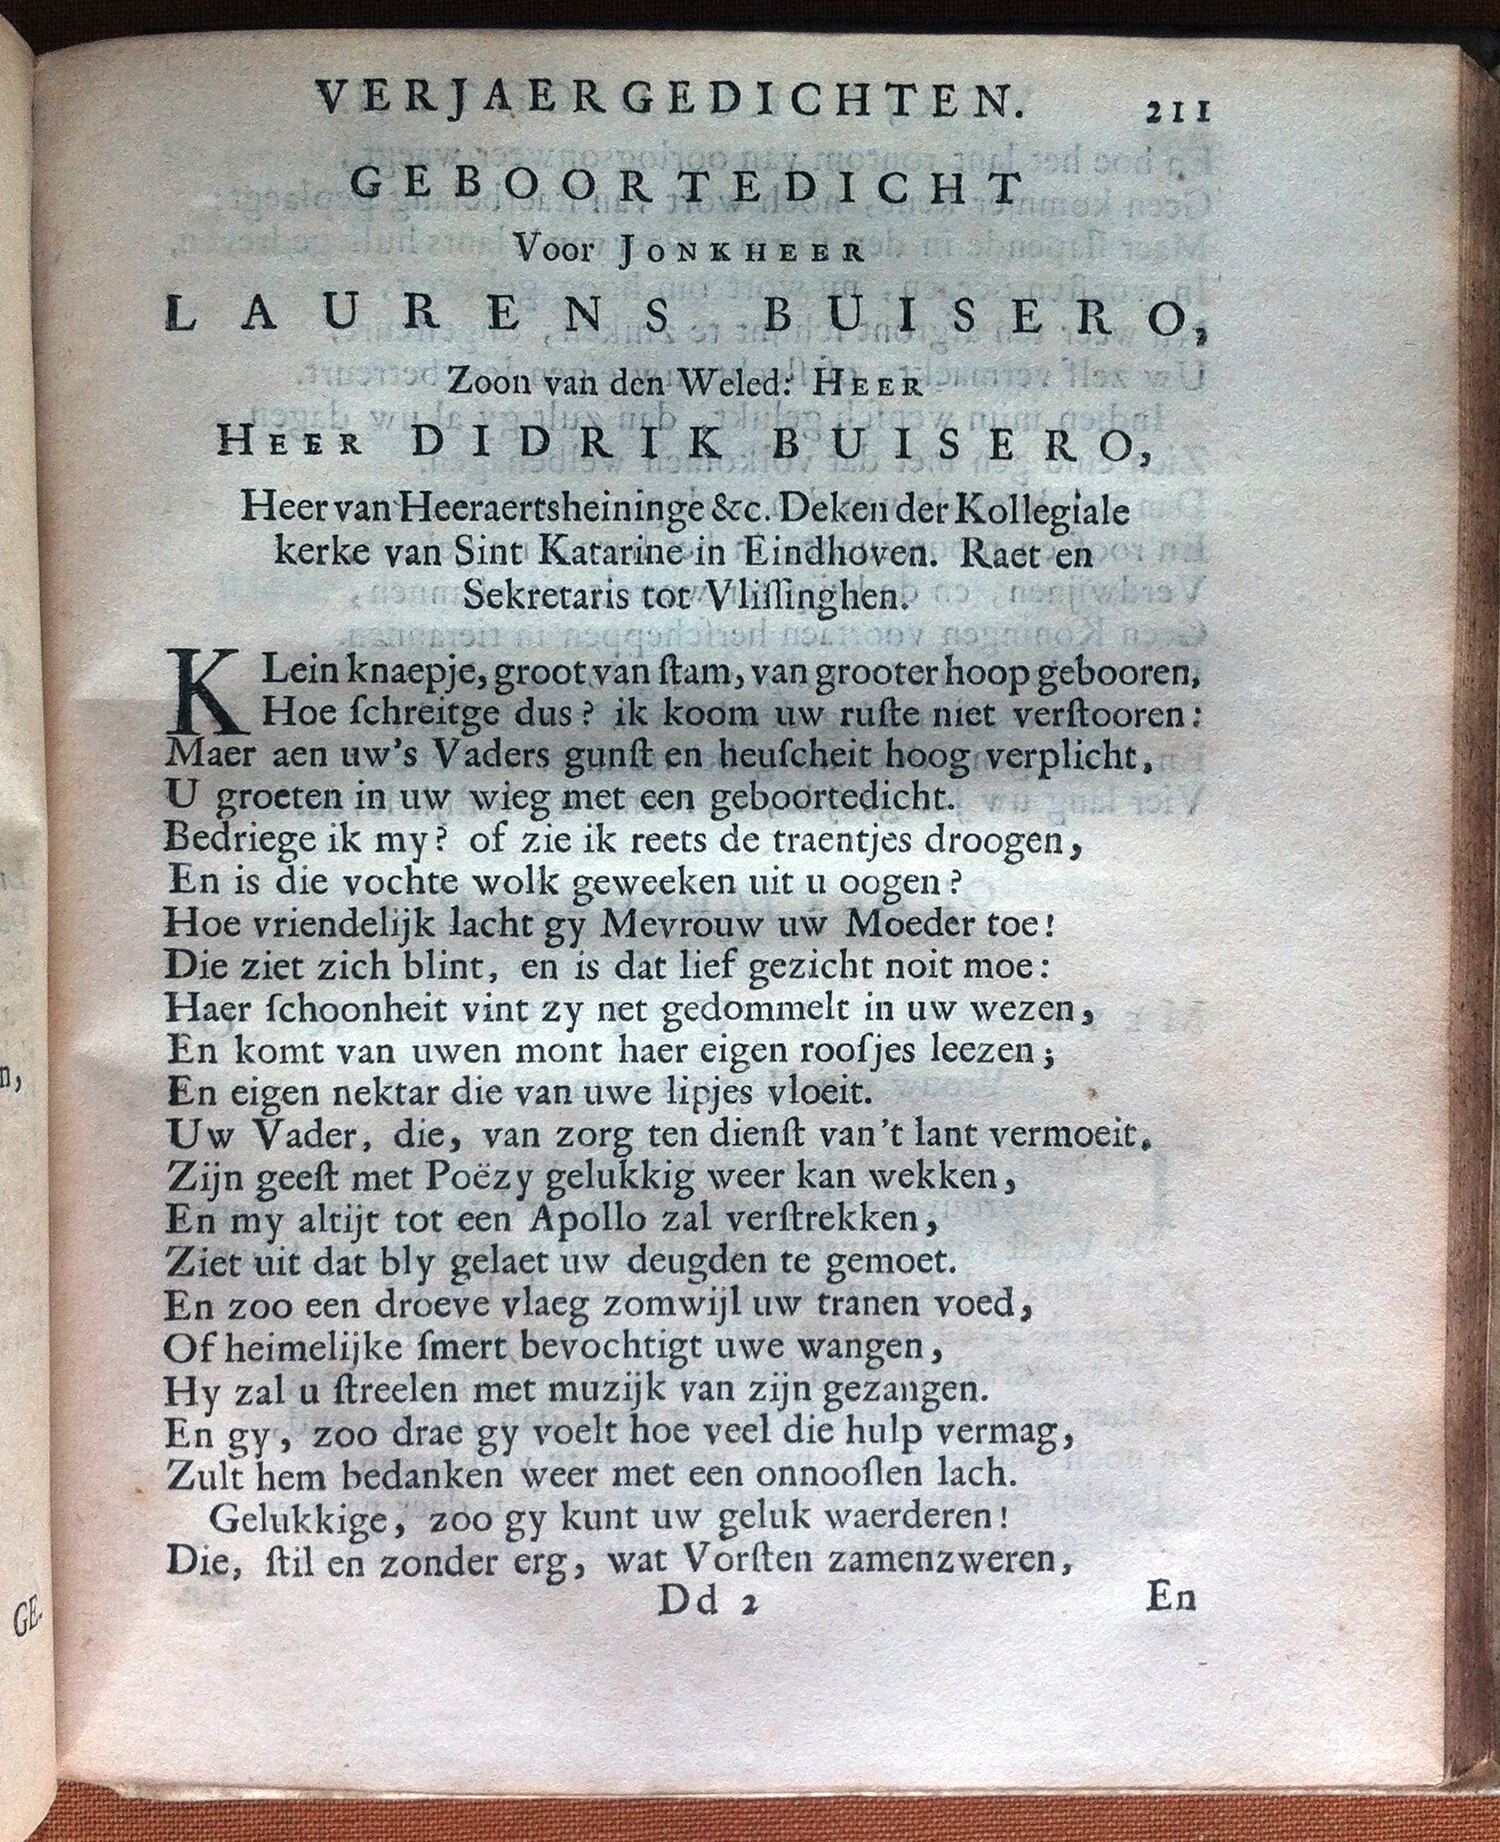 VERJAERGEDICHTEN. 211
GEBOORTEDICHT
Voor JONKHEER
LAURENS BUISERO,
Zoon van den Weled: HEER
HEER DIDRIK BUISERO,
Heer van Heeraertsheininge &c. Deken der Kollegiale
kerke van Sint Katarine in Eindhoven. Raet en
Sekretaris tot Vliſſinghen.
KLein knaepje, groot van ſtam, van grooter hoop gebooren,
Hoe ſchreitge dus? ik koom uw ruſte niet verſtooren:
Maer aen uw's Vaders gunſt en heuſcheit hoog verplicht,
U groeten in uw wieg met een geboortedicht.
Bedriege ik my? of zie ik reets de traentjes droogen,
En is die vochte wolk geweeken uit u oogen?
Hoe vriendelijk lacht gy Mevrouw uw Moeder toe!
Die ziet zich blint, en is dat lief gezicht noit moe:
Haer ſchoonheit vint zy net gedommelt in uw wezen,
En komt van uwen mont haer eigen rooſjes leezen;
En eigen nektar die van uwe lipjes vloeit.
Uw Vader, die, van zorg ten dienſt van't lant vermoeit,
Zijn geeſt met Poëzy gelukkig weer kan wekken,
En my altijt tot een Apollo zal verſtrekken,
Ziet uit dat bly gelaet uw deugden te gemoet.
En zoo een droeve vlaeg zomwijl uw tranen voed,
Of heimelijke ſmert bevochtigt uwe wangen,
Hy zal u ſtreelen met muzijk van zijn gezangen.
En gy, zoo drae gy voelt hoe veel die hulp vermag,
Zult hem bedanken weer met een onnooſlen lach.
Gelukkige, zoo gy kunt uw geluk waerderen!
Die, ſtil en zonder erg, wat Vorſten zamenzweren,
Dd 2 En
n,
GE.